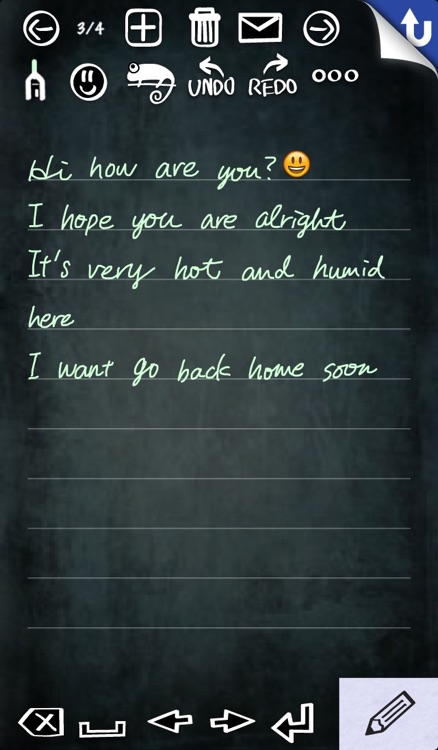 3/4
UNDO REDO
Hi how are you?😃
I hope you are alright
It's very hot and humid
here
I want go back home soon